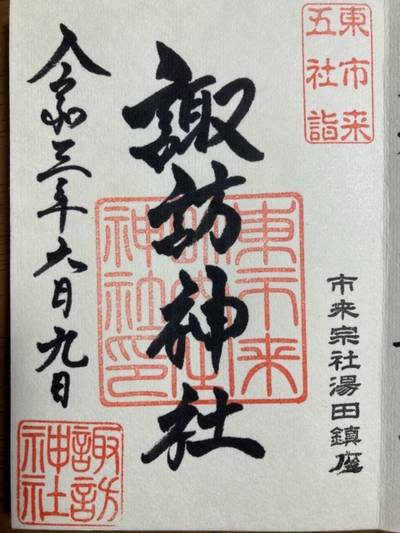 東市来
五社詣
市来宗社湯田鎮座
諏訪神社
東市来
神社印
令和三年六月九日
諏訪
神社